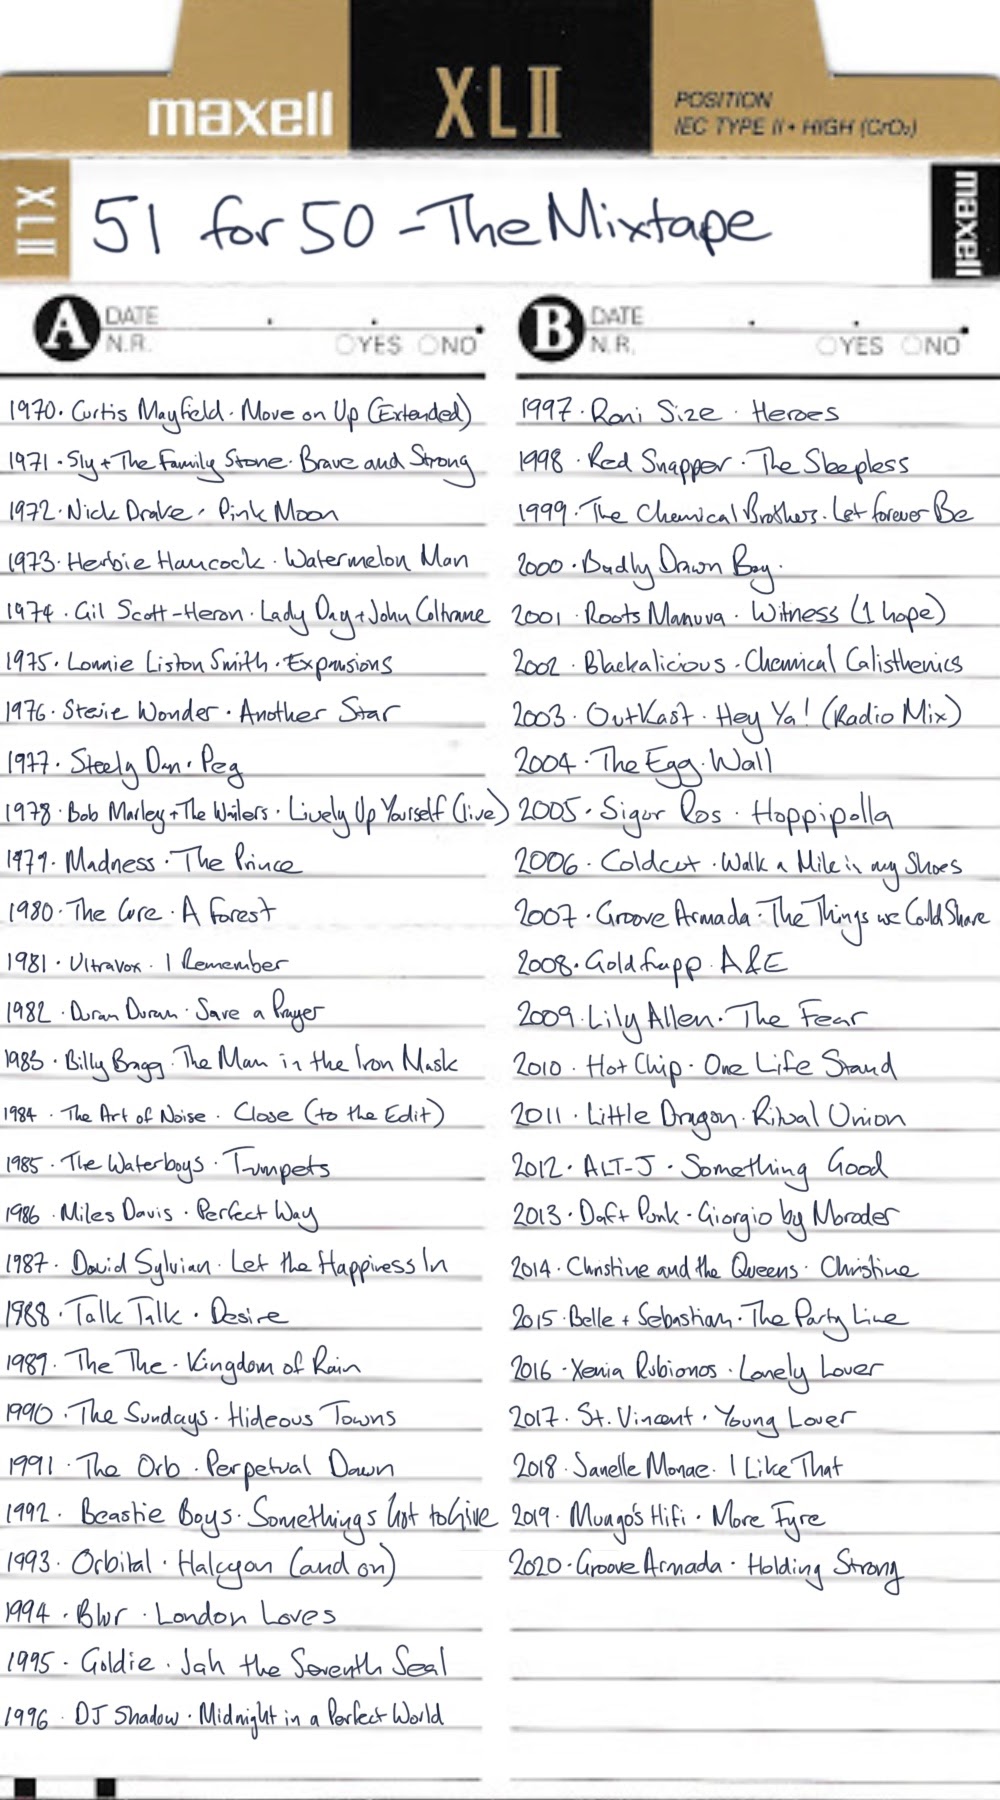 maxell
XLII
POSITION
IEC TYPE II • HIGH (CrO₂)
XLII
51 for 50 - The Mixtape
maxell
A DATE
N.R. YES NO
1970. Curtis Mayfield. Move on Up (Extended)
1971. Sly + The Family Stone. Brave and Strong
1972. Nick Drake. Pink Moon
1973. Herbie Hancock. Watermelon Man
1974. Gil Scott-Heron. Lady Day + John Coltrane
1975. Lonnie Liston Smith. Expansions
1976. Stevie Wonder. Another Star
1977. Steely Dan. Peg
1978. Bob Marley + The Wailers. Lively Up Yourself (live)
1979. Madness. The Prince
1980. The Cure. A Forest
1981. Ultravox. I Remember
1982. Duran Duran. Save a Prayer
1983. Billy Bragg. The Man in the Iron Mask
1984. The Art of Noise. Close (to the Edit)
1985. The Waterboys. Trumpets
1986. Miles Davis. Perfect Way
1987. David Sylvian. Let the Happiness In
1988. Talk Talk. Desire
1989. The The. Kingdom of Rain
1990. The Sundays. Hideous Towns
1991. The Orb. Perpetual Dawn
1992. Beastie Boys. Somethings Got to Give
1993. Orbital. Halcyon (and on)
1994. Blur. London Loves
1995. Goldie. Jah the Seventh Seal
1996. DJ Shadow. Midnight in a Perfect World
B DATE
N.R. YES NO
1997. Roni Size. Heroes
1998. Red Snapper. The Sleepless
1999. The Chemical Brothers. Let forever Be
2000. Badly Drawn Boy.
2001. Roots Manuva. Witness (1 hope)
2002. Blackalicious. Chemical Calisthenics
2003. OutKast. Hey Ya! (Radio Mix)
2004. The Egg. Wall
2005. Sigur Ros. Hoppipolla
2006. Coldcut. Walk a Mile in my Shoes
2007. Groove Armada. The Things we Could Share
2008. Goldfrapp. A&E
2009. Lily Allen. The Fear
2010. Hot Chip. One Life Stand
2011. Little Dragon. Ritual Union
2012. ALT-J. Something Good
2013. Daft Punk. Giorgio by Moroder
2014. Christine and the Queens. Christine
2015. Belle + Sebastian. The Party Line
2016. Xenia Rubionos. Lonely Lover
2017. St. Vincent. Young Lover
2018. Janelle Monae. I Like That
2019. Mungo's Hifi. More Fyre
2020. Groove Armada. Holding Strong